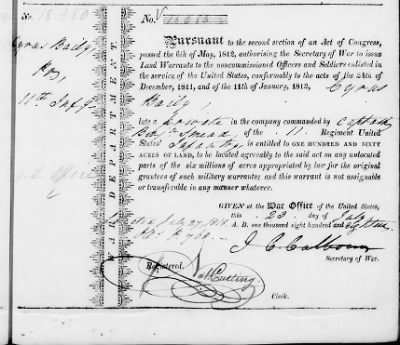 No.
No.
Cyrus Baily,
11th Inf'y
PURSUANT to the second section of an Act of Congress,
passed the 6th of May, 1812, authorising the Secretary of War to issue
Land Warrants to the noncommissioned Officers and Soldiers enlisted in
the service of the United States, conformably to the acts of the 24th of
December, 1811, and of the 11th of January, 1812, Cyrus
Baily,
late a private in the company commanded by Captain
of the 11 Regiment United
States' Infantry is entitled to ONE HUNDRED AND SIXTY
ACRES OF LAND, to be located agreeably to the said act on any unlocated
parts of the six millions of acres appropriated by law for the original
grantees of such military warrants; and this warrant is not assignable
or transferable in any manner whatever.
GIVEN at the War Office of the United States,
this 23 day of July
A. D. one thousand eight hundred and
July 27, 1818
J. C. Calhoun
Secretary of War.
Registered.
Nat Cutting
Clerk.
WAR DEPARTMENT